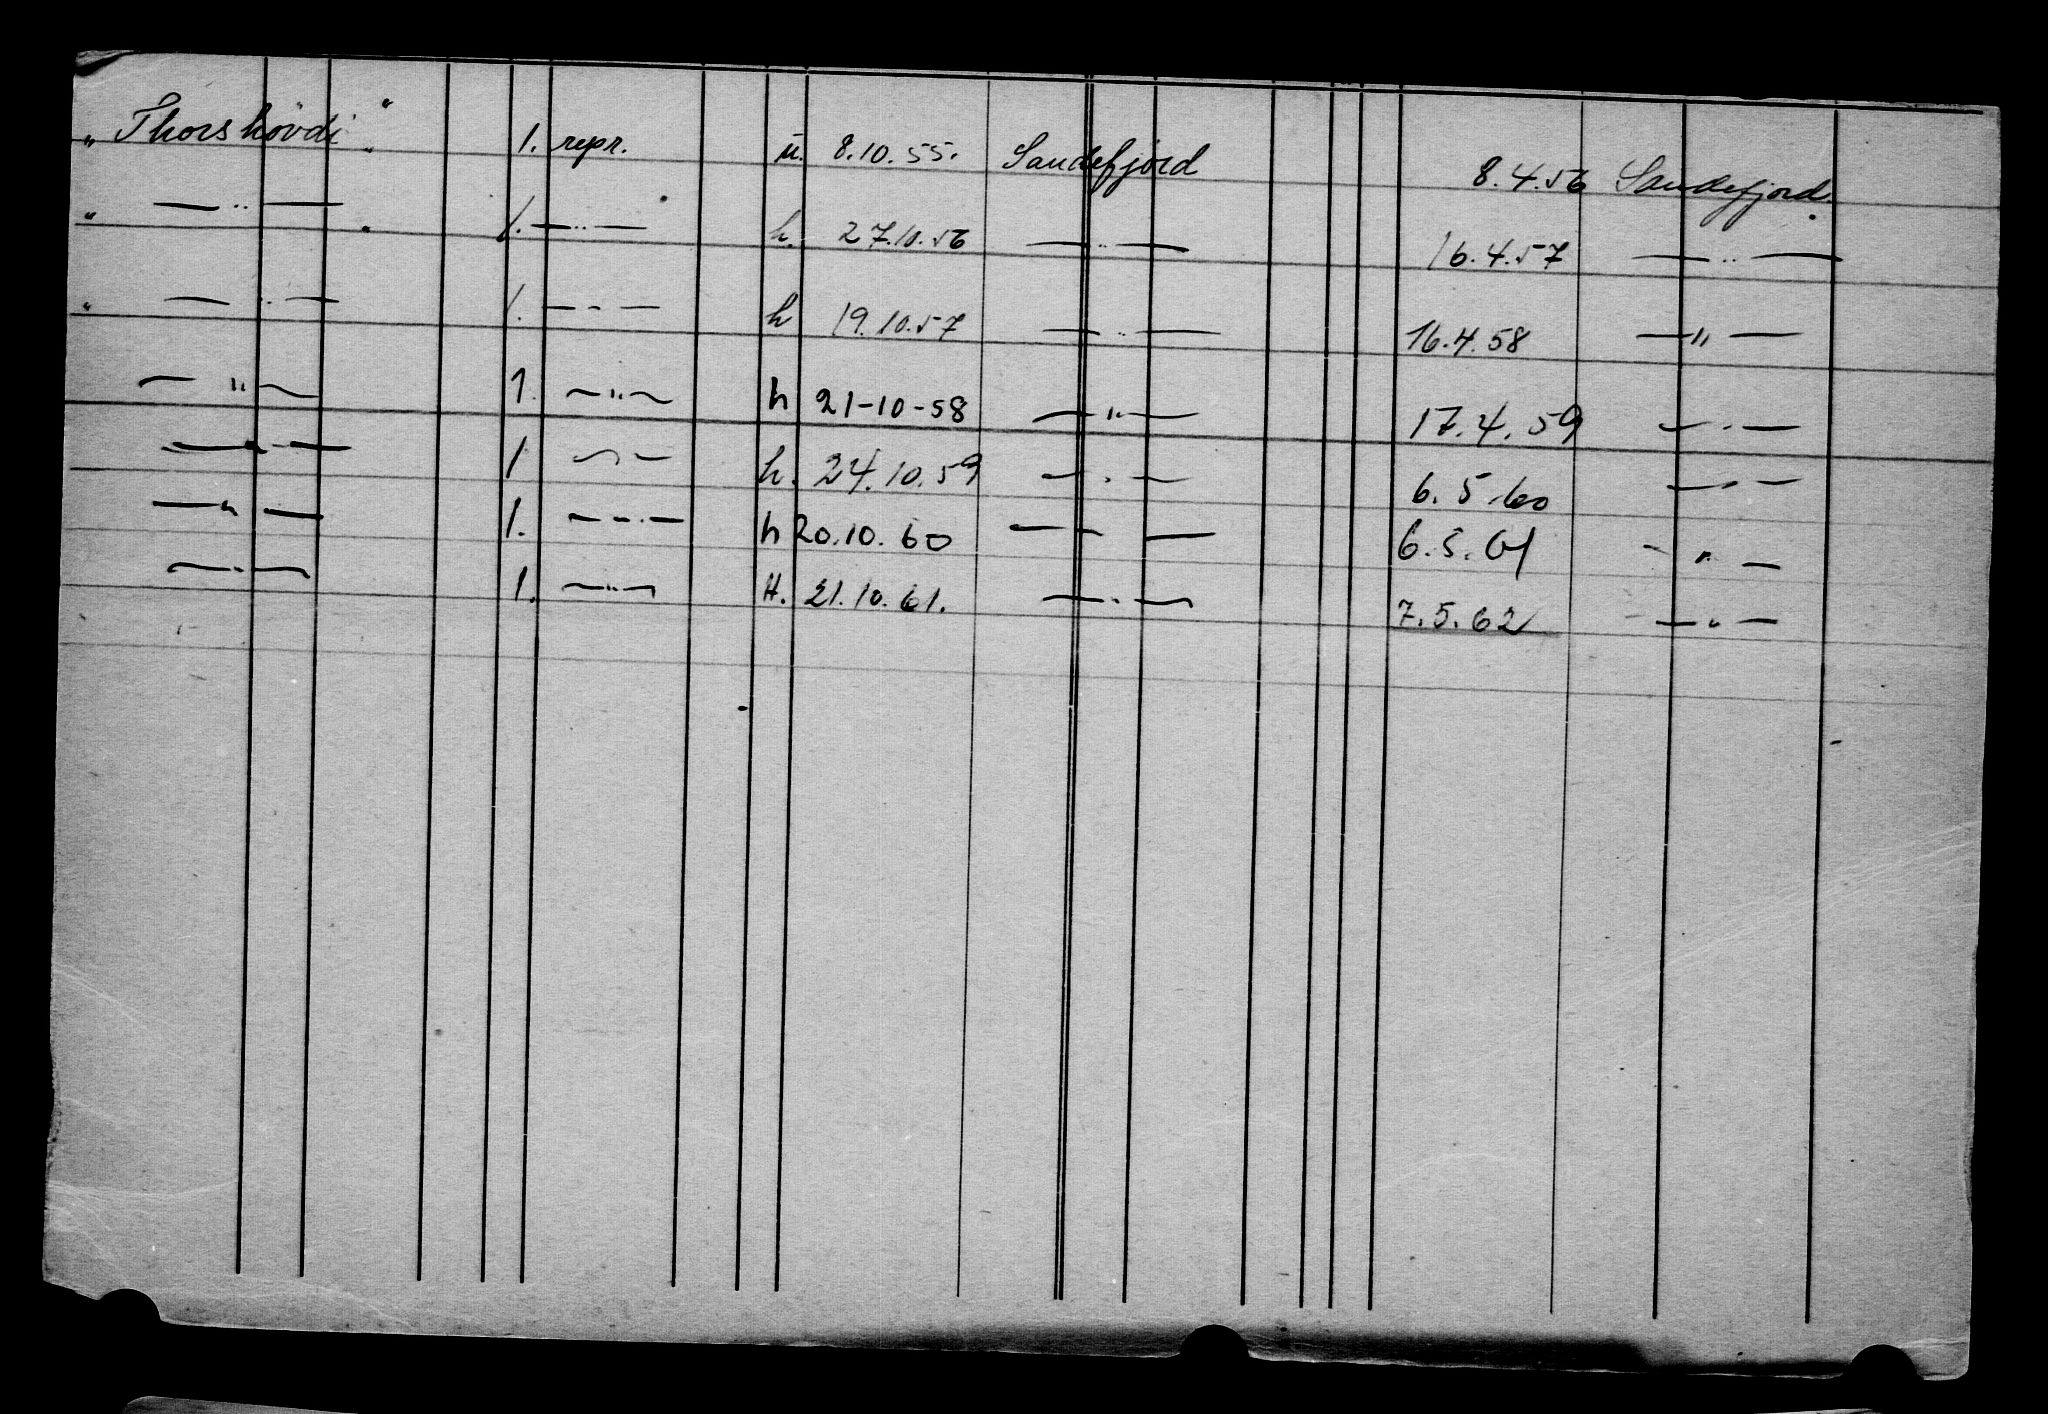 " Thorshövdi " 1. repr. u. 8.10.55. Sandefjord 8.4.56 Sandefjord.
" — " — 1. — " — h. 27.10.56 — " — 16.4.57 — " —
" — " — 1. — " — h 19.10.57 — " — 16.4.58 — " —
— " — 1. — " — h 21-10-58 — " — 17.4.59 — " —
— " — 1 — " — h. 24.10.59 — " — 6.5.60 — " —
— " — 1. — " — h 20.10.60 — " — 6.5.61 — " —
— " — 1. — " — H. 21.10.61. — " — 7.5.62 — " —